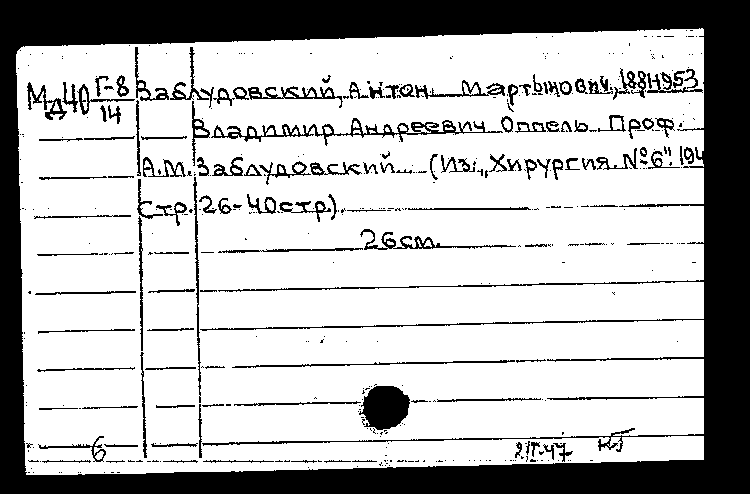 Мд40 Г-8/14 Заблудовский, Антон Мартынович, 1881-1953
Владимир Андреевич Оппель. Проф.
А.М. Заблудовский. (Из: „Хирургия. №6". 194
стр. 26-40стр.).
26см.
6